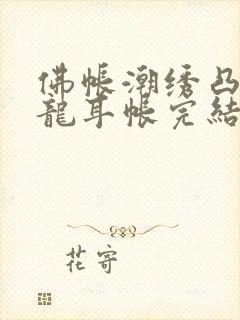 佛帐潮绣凸
龍耳帐完結
花寄